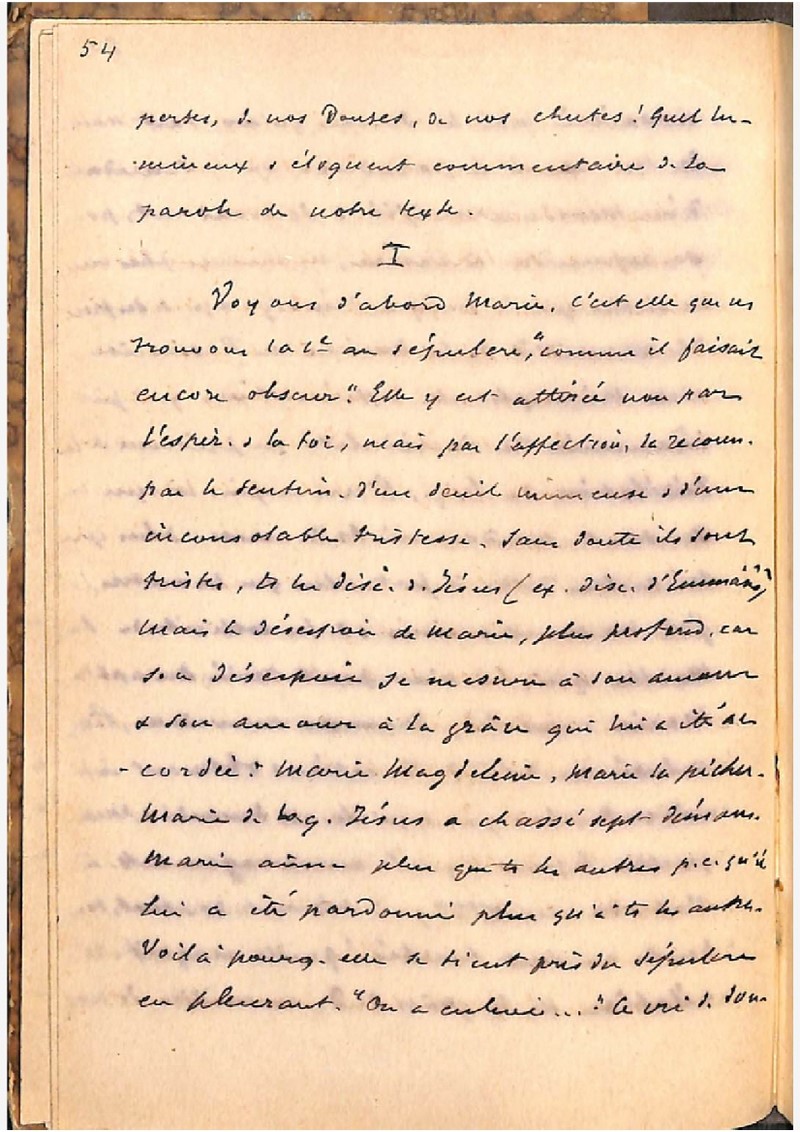 54
pertes, de nos doutes, de nos chutes! Quel lu-
mineux & éloquent commentaire de la
parole de notre texte.
I
Voyons d'abord Marie. C'est elle que ns
trouvons la 1e au sépulcre, "comme il faisait
encore obscur". Elle y est attirée non par
l'espér. & la foi, mais par l'affection, la reconn.
par le sentim. d'un deuil & d'une
inconsolable tristesse. Sans doute ils sont
tristes, ts les disc. de Jésus (ex. disc. d'Emmaüs)
Mais le désespoir de Marie, plus profond, car
son désespoir se mesure à son amour
& son amour à la grâce qui lui a été ac
-cordée : Marie Magdeleine, Marie la pécher.
Marie de Jésus a chassé sept démons.
Marie aime plus que ts les autres p.c. qu'il
lui a été pardonné plus qu'à ts les autres.
Voilà pourq. elle se tient près du sépulcre
en pleurant. "On a enlevé..." Ce cri de dou-